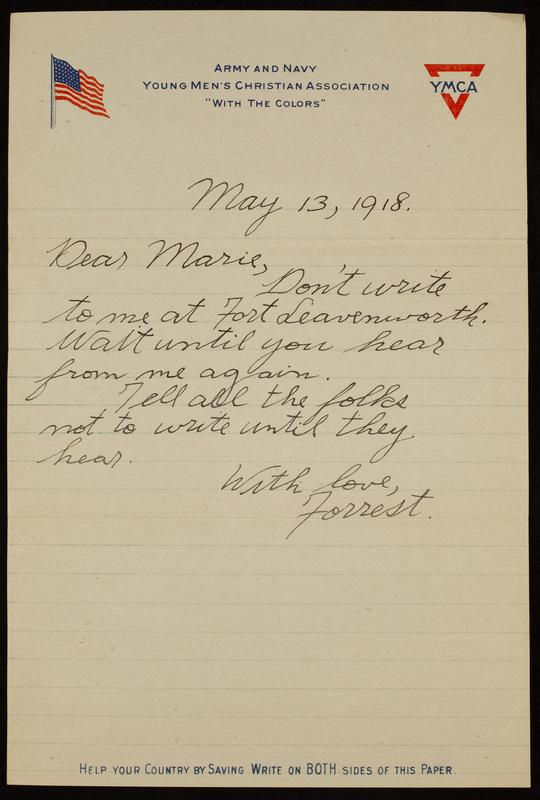 ARMY AND NAVY
YOUNG MEN'S CHRISTIAN ASSOCIATION
"WITH THE COLORS"
YMCA
May 13, 1918.
Dear Marie,
Don't write
to me at Fort Leavenworth.
Wait until you hear
from me again.
Tell all the folks
not to write until they
hear.
With love,
Forrest.
HELP YOUR COUNTRY BY SAVING WRITE ON BOTH SIDES OF THIS PAPER